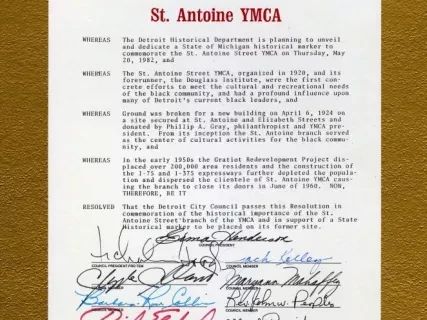 St. Antoine YMCA
WHEREAS The Detroit Historical Department is planning to unveil
and dedicate a State of Michigan historical marker to
commemorate the St. Antoine Street YMCA on Thursday, May
20, 1982, and
WHEREAS The St. Antoine Street YMCA, organized in 1920, and its
forerunner, the Douglass Institute, were the first con-
crete efforts to meet the cultural and recreational needs
of the black community, and had a profound influence upon
many of Detroit's current black leaders, and
WHEREAS Ground was broken for a new building on April 6, 1924 on
a site secured at St. Antoine and Elizabeth Streets and
donated by Phillip A. Gray, philanthropist and YMCA pre-
sident. From its inception the St. Antoine branch served
as the center of cultural activities for the black commu-
nity, and
WHEREAS In the early 1950s the Gratiot Redevelopment Project dis-
placed over 200,000 area residents and the construction
of the I-75 and I-375 expressways further depleted the popula-
tion and dispersed the clientele of St. Antoine YMCA caus-
ing the branch to close its doors in June of 1960. NOW,
THEREFORE, BE IT
RESOLVED That the Detroit City Council passes this Resolution in
commemoration of the historical importance of the St.
Antoine Street branch of the YMCA and in support of a State
Historical marker to be placed on its former site.
Erma Henderson
COUNCIL PRESIDENT
Jack Kelley
COUNCIL PRESIDENT PRO TEM
COUNCIL MEMBER
Maryann Mahaffey
COUNCIL MEMBER
COUNCIL MEMBER
Barbara-Rose Collins
Rev. John W. Peoples
COUNCIL MEMBER
COUNCIL MEMBER